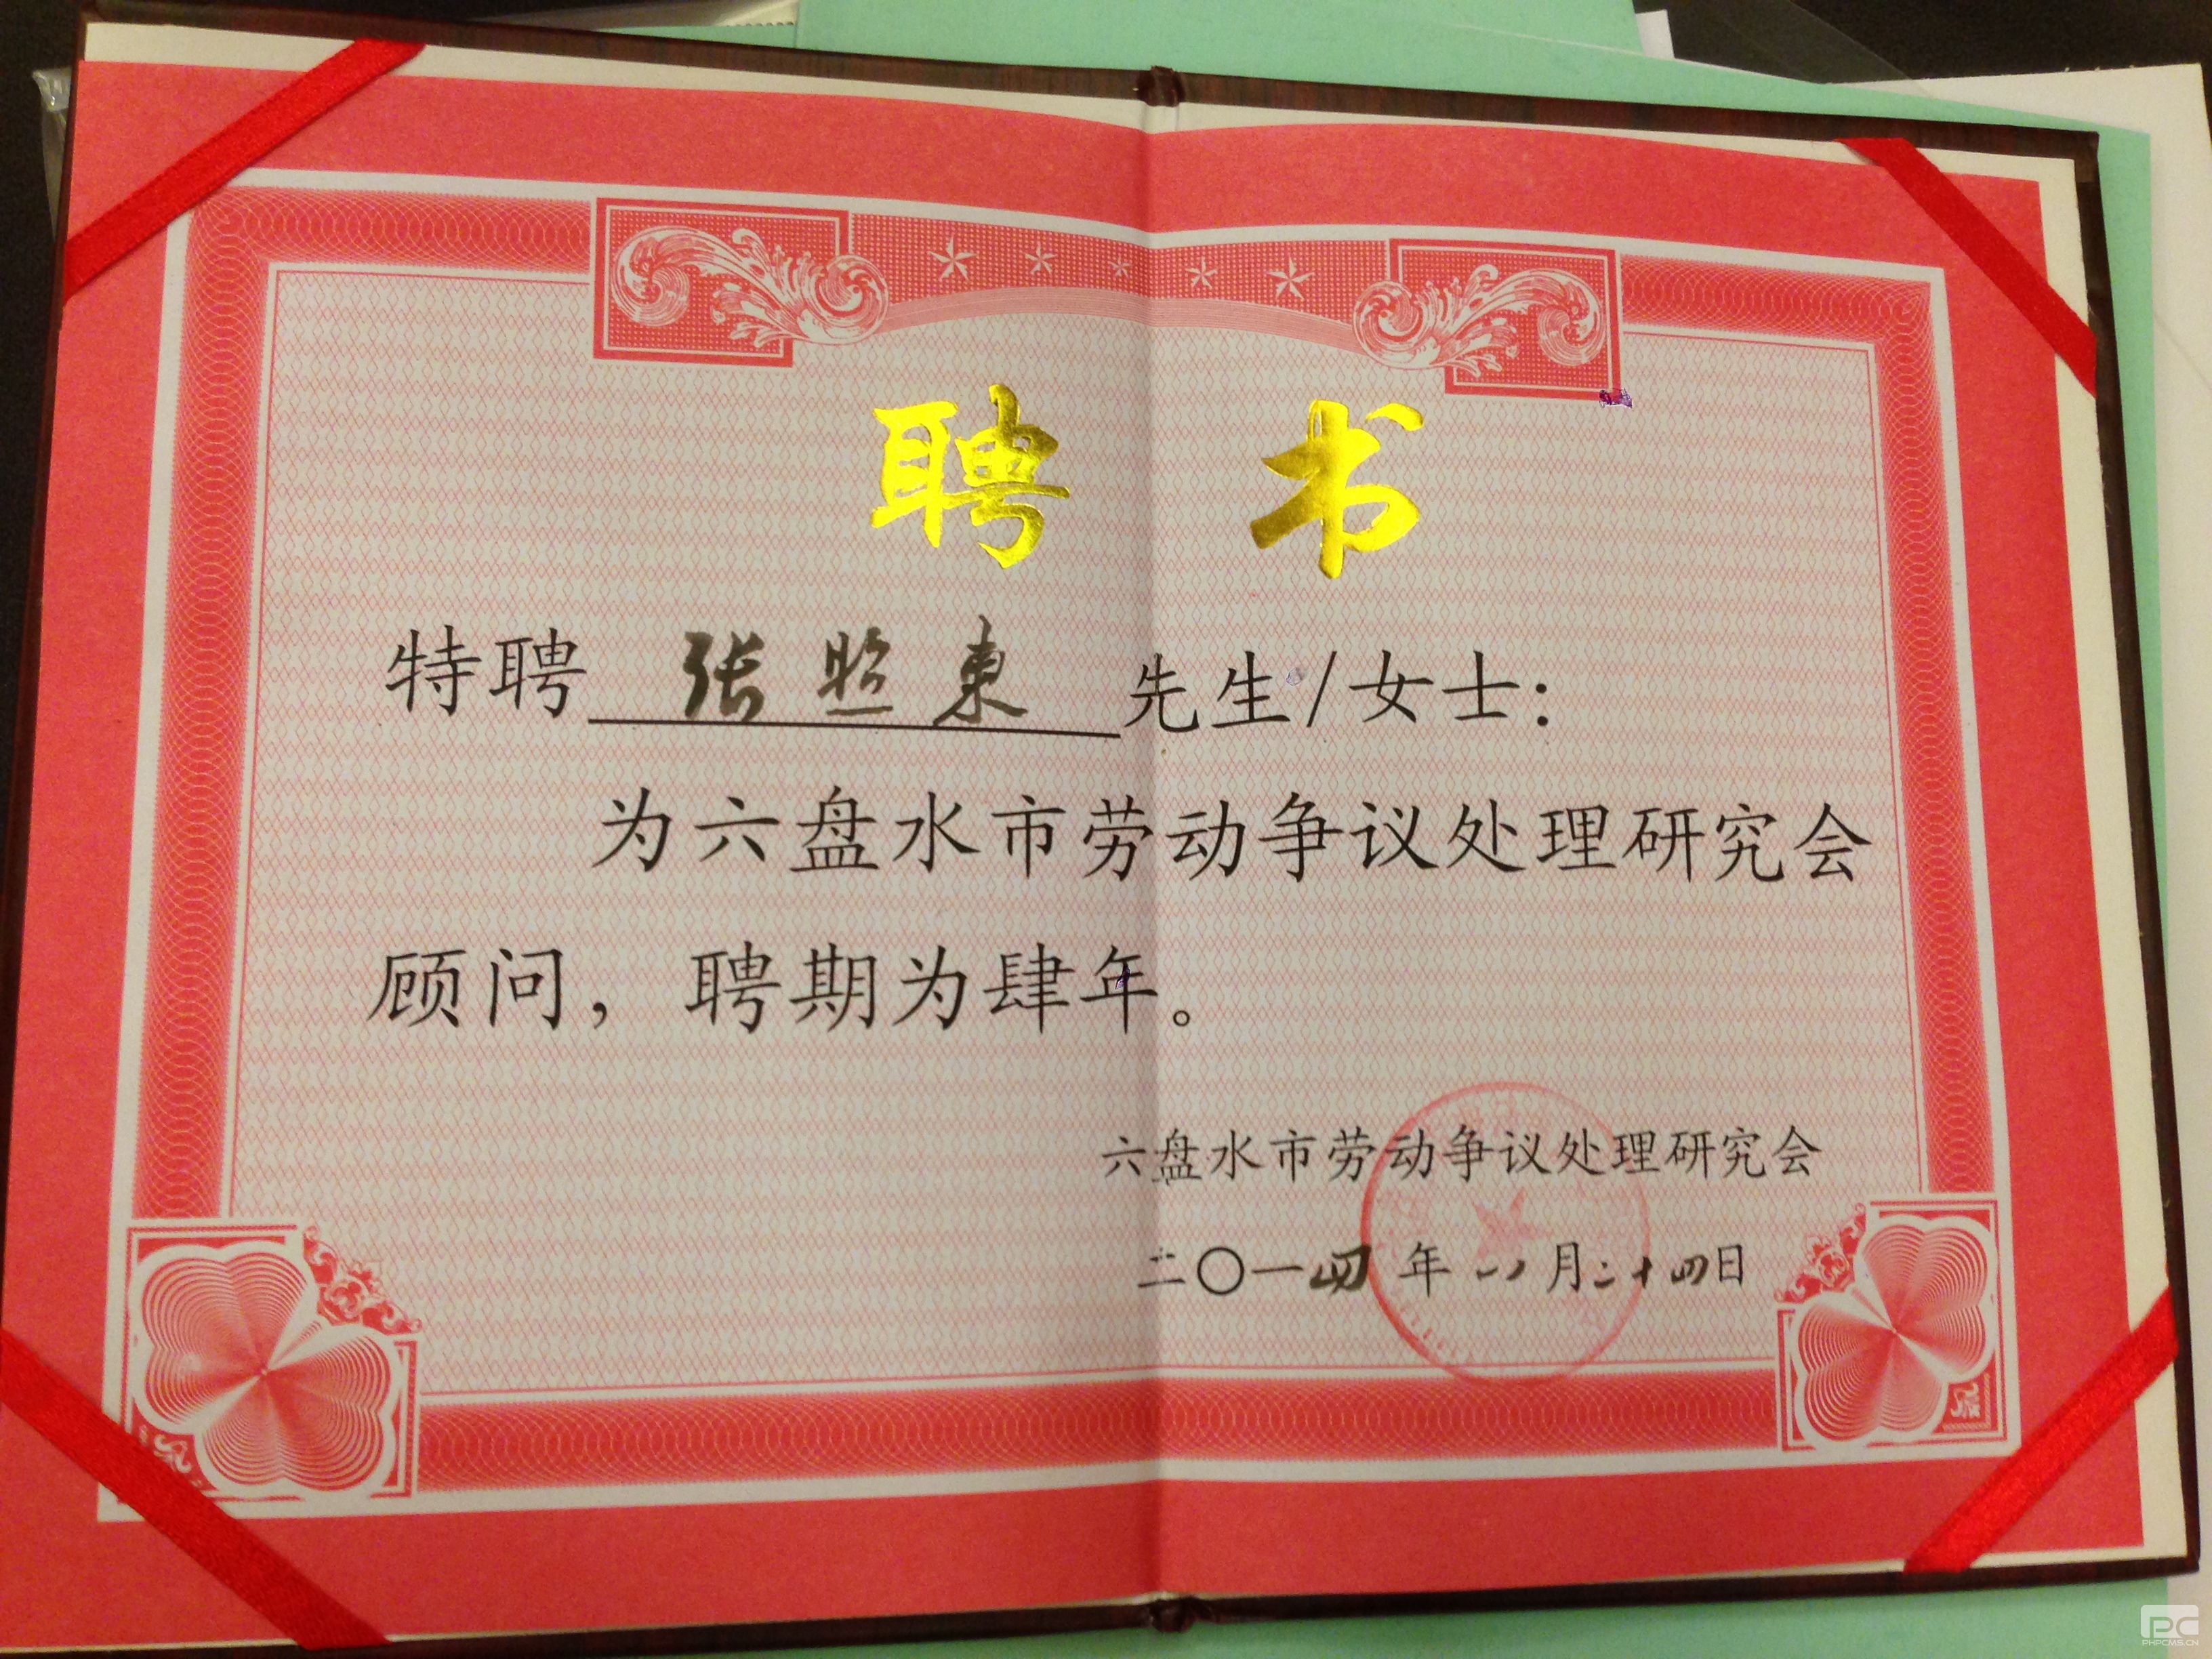 聘书
特聘 张照东 先生/女士：
为六盘水市劳动争议处理研究会
顾问，聘期为肆年。
六盘水市劳动争议处理研究会
二〇一四年 八月二十四日
PC
PHPCMS.CN